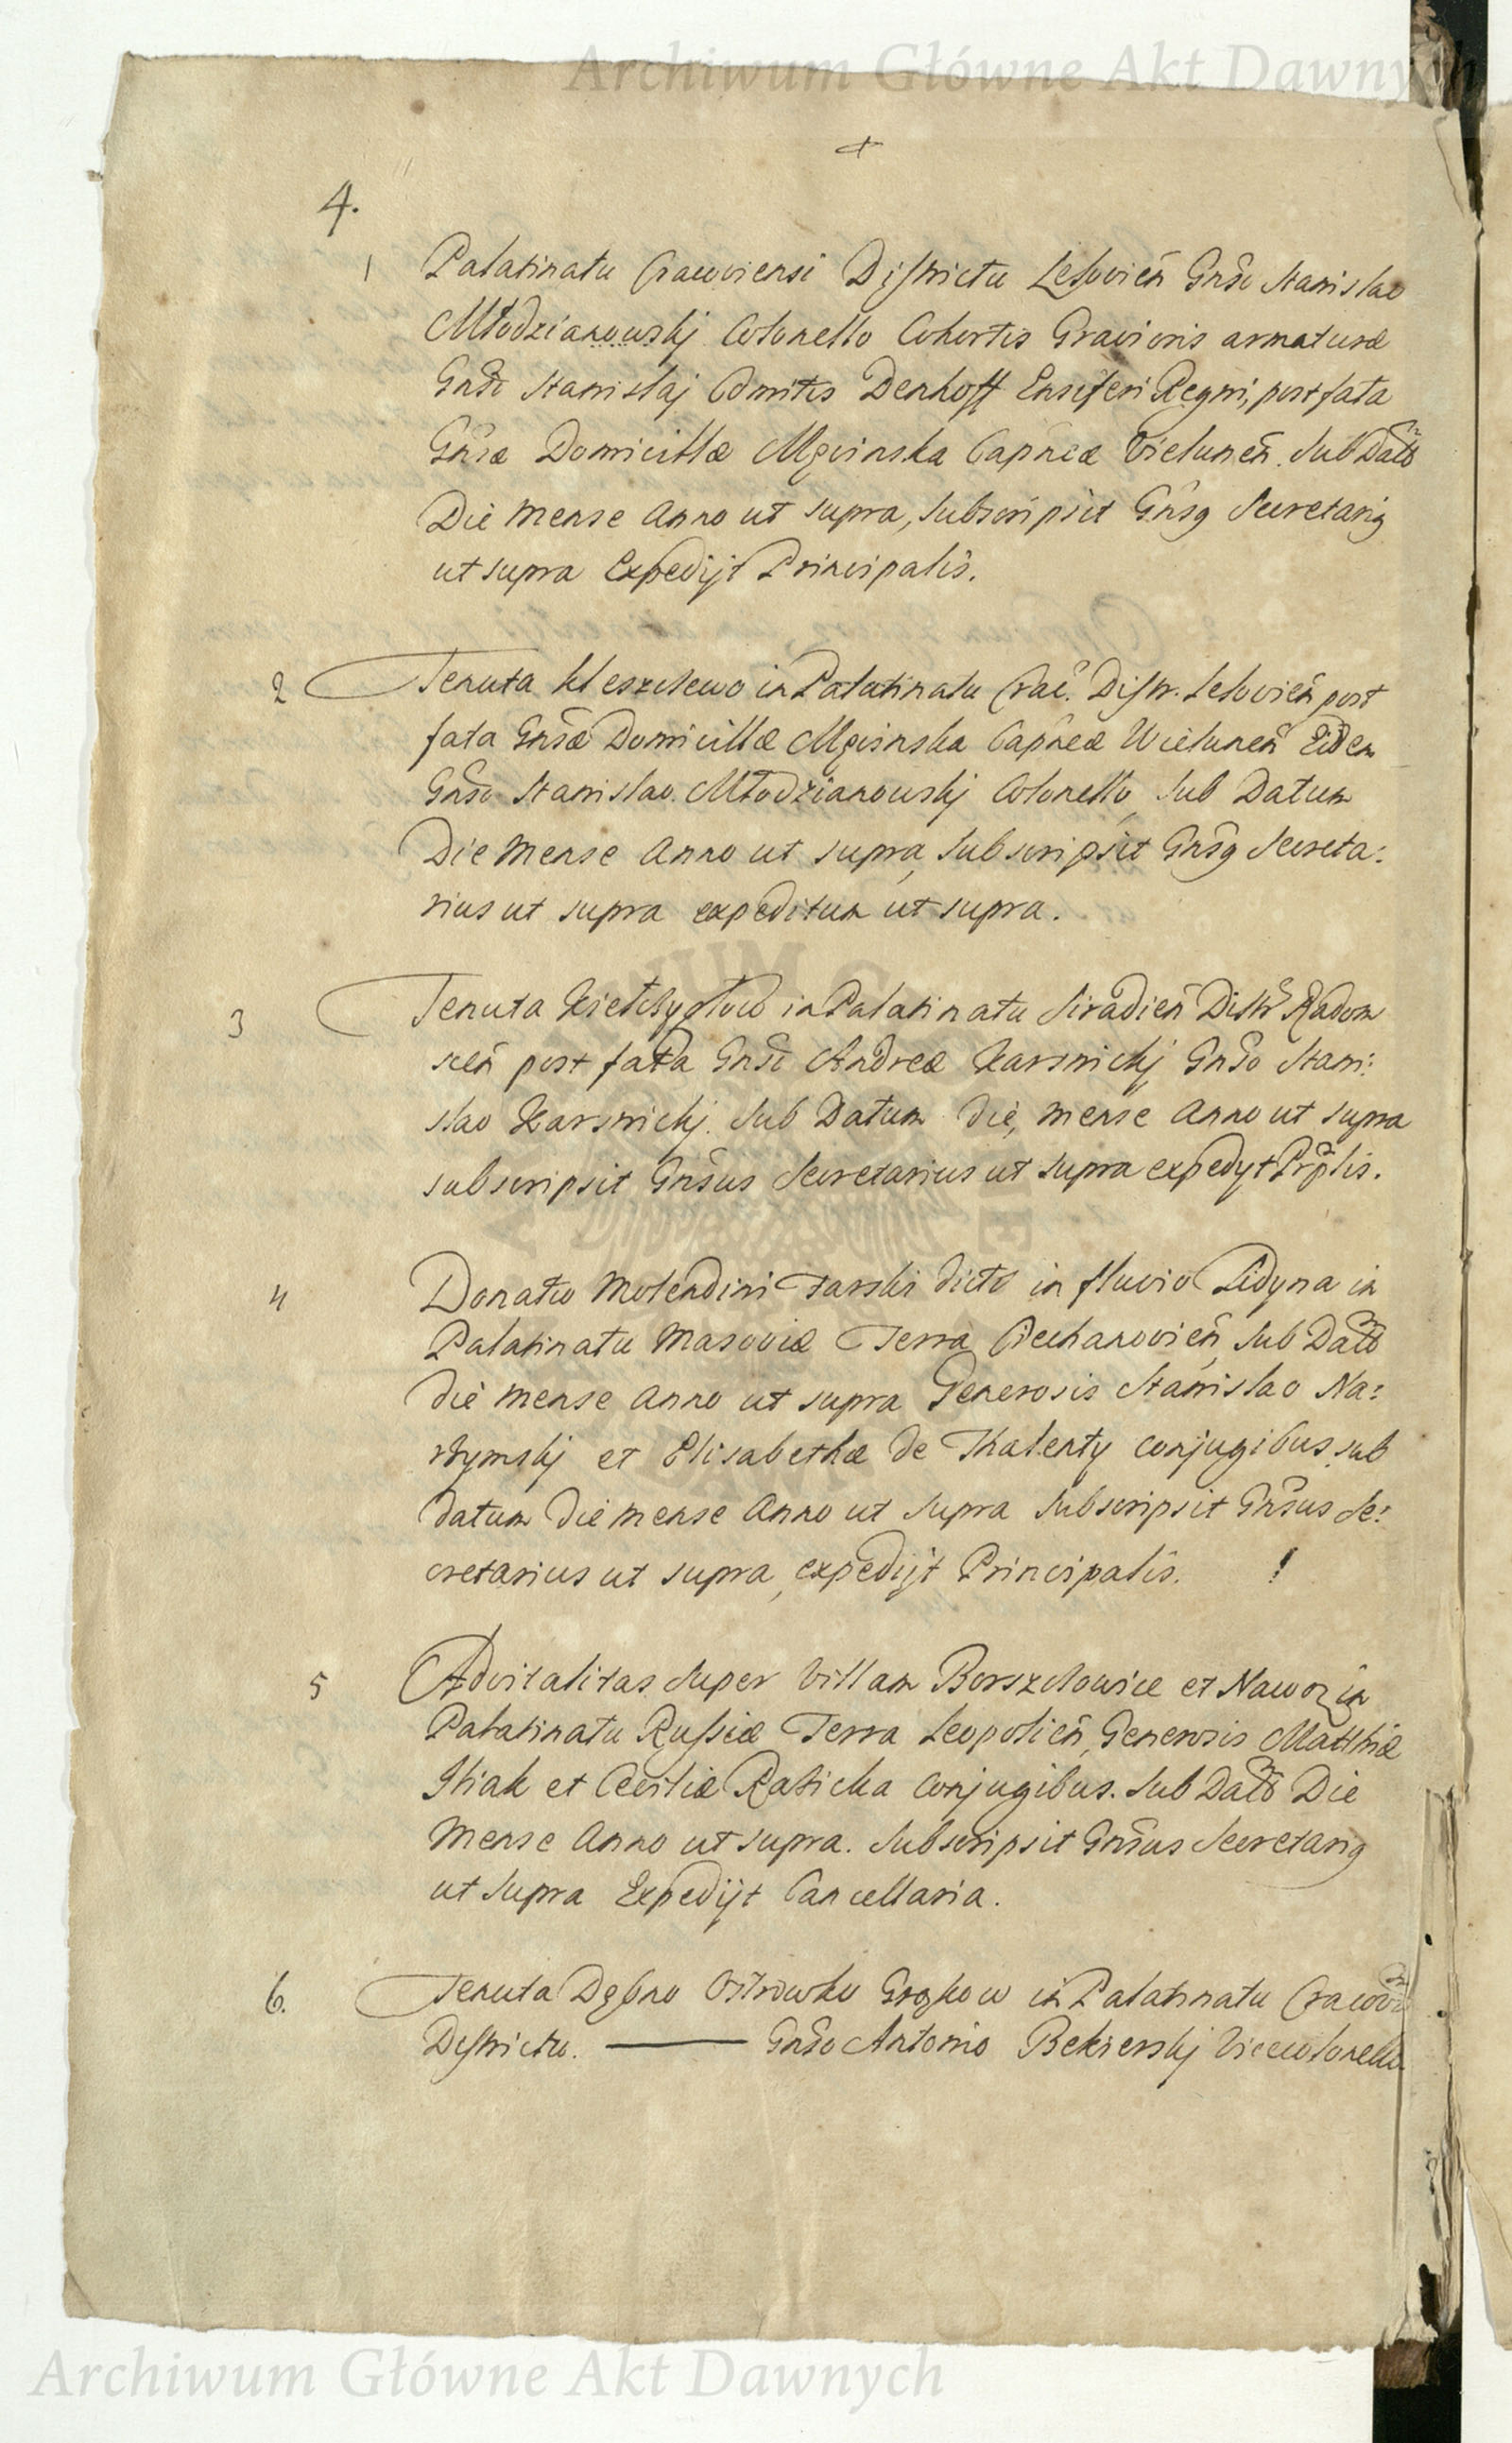 Archiwum Główne Akt Dawnych
4.
1 Palatinatu Cracoviensi Districtu Lelovien̄ Gnso Stanislao
Młodzianowskj Colonello Cohortis Gravioris armaturæ
Gnsi Stanislaj Comitis Denhoff Ensiferi Regni, post fata
Gnsæ Domicillæ Mgcinska Capneæ Vielunen̄. Sub Datt
Die Mense Anno ut supra, Subscripsit Gnsg Secretarig
ut supra Expedijt Principalis.
2 Tenuta Kleszczewo in Palatinatu Crac. Distr. Lelovien̄ post
fata Gnsæ Domicillæ Mgcinska Capneæ Wielunen̄ Eidem
Gnso Stanislao Młodzianowskj Colonello, Sub Datum
Die Mense Anno ut supra, Subscripsit Gnsg Secreta:
rius ut supra expeditum ut supra.
3 Tenuta Kiełczygłow in Palatinatu Siradien̄ Distr Radom
scen̄ post fata Gnsi Andreæ Karsnickj Gnso Stani:
slao Karsnickj. Sub Datum die, mense Anno ut supra
subscripsit Gnsus Secretarius ut supra expedyt Prplis.
4 Donatio Molendini Tarski dicti in fluvio Lidyna in
Palatinatu Masoviæ Terra Ciechanovien̄, Sub Datt
die mense Anno ut supra Generosis Stanislao Na:
rzymskj et Elisabethæ de Thalenty conjugibus, sub
datum die mense Anno ut supra Subscripsit Gnsus Se:
cretarius ut supra, expedijt Principalis. !
5 Advitalitas super Villam Borszczowice et Nawoz in
Palatinatu Russiæ Terra Leopolien̄, Generosis Matthiæ
Stiak et Ceciliæ Raficka Conjugibus. Sub Datt Die
Mense Anno ut supra. Subscripsit Gnsus Secretarig
ut Supra Expedijt Cancellaria.
6. Tenuta Dębno Ostrowko in Palatinatu Cracov
Districtu. Gnso Antonio Bekierskj Vicecolonello
Archiwum Główne Akt Dawnych